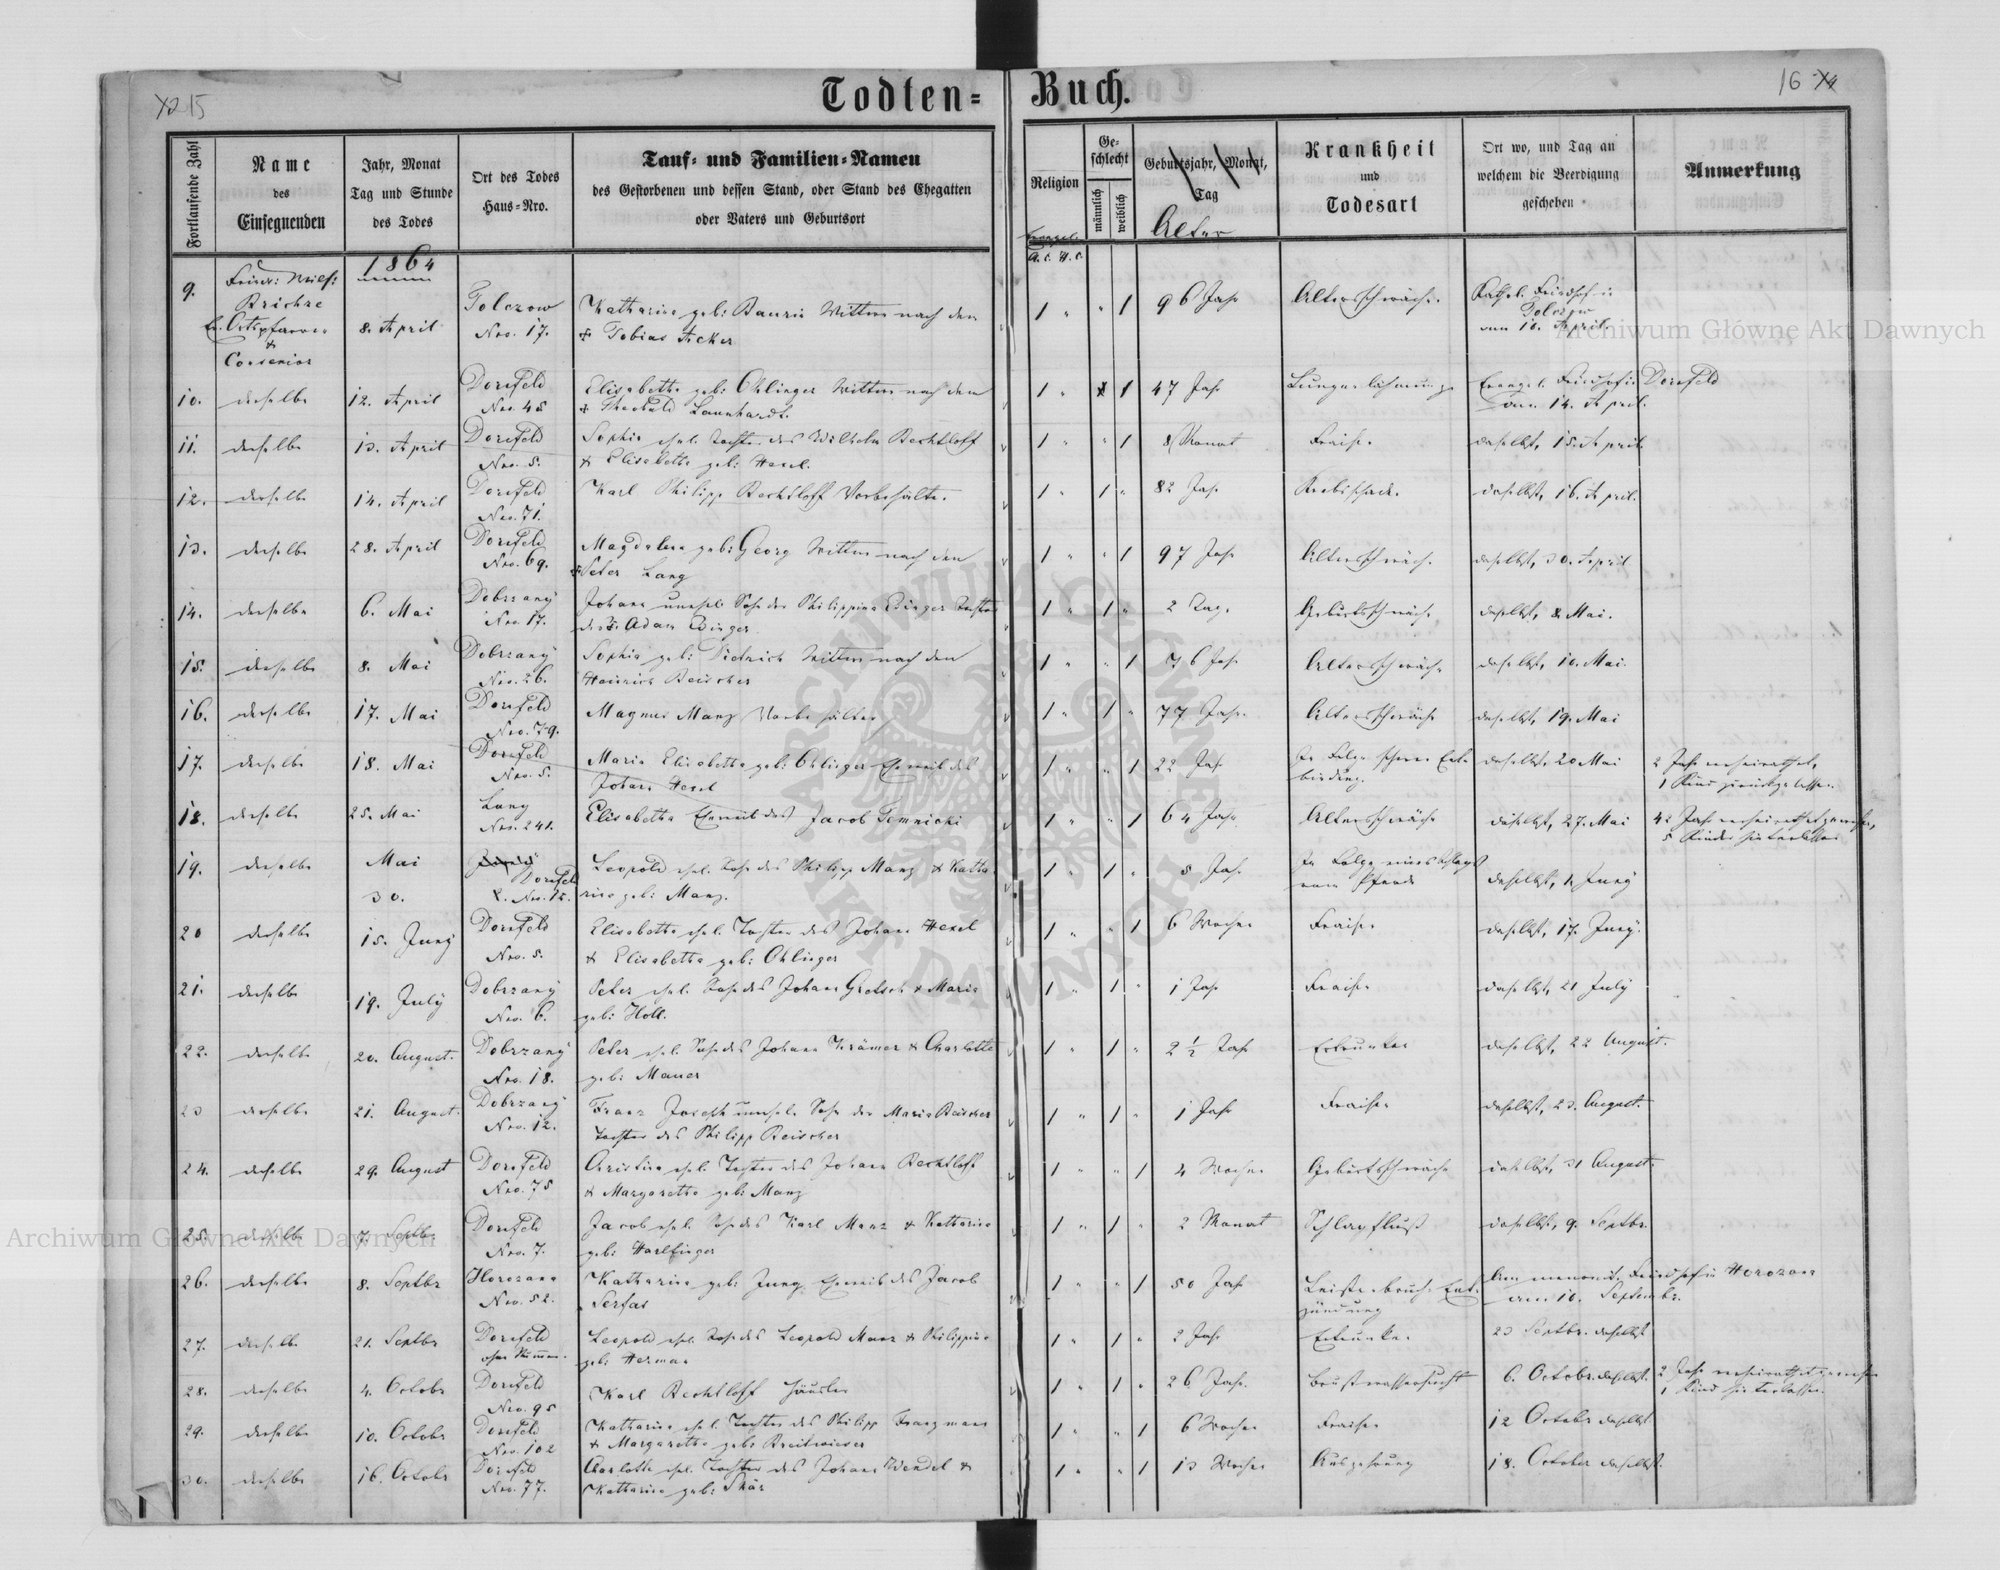 15
Todten=
Buch.
16
Fortlaufende Zahl
Name
des
Einsegnenden
Jahr, Monat
Tag und Stunde
des Todes
Ort des Todes
Haus=Nro.
Tauf= und Familien=Namen
des Gestorbenen und dessen Stand, oder Stand des Ehegatten
oder Vaters und Geburtsort
Religion
Ge-
schlecht
männlich
weiblich
Geburtsjahr, Monat,
Tag
Alter
Krankheit
und
Todesart
Ort wo, und Tag an
welchem die Beerdigung
geschehen
Anmerkung
Evangel.
A. C. H. C.
1864
9. 8. April Nro. 17. Katharina geb: Wittwe nach dem
✠ Tobias Acker
1 " " 1 96 Jahr Altersschwäche. Kathol. Friedhof in
am 10. April.
Ev. Ortspfarrer
&
Consenior
10. derselbe 12. April Dornfeld Elisabetha geb: Ohlinger Wittwe nach dem
Nro. 45 ✠ Theobald Launhardt.
1 " 1 47 Jahr Lungenlähmung Evangel. Friedhof in Dornfeld
am 14. April.
11. derselbe 13. April Dornfeld Sophia ehel. Tochter des Wilhelm Bechtloff
Nro. 5. & Elisabetha geb: Hexel.
1 " " 1 8 Monat Fraisen daselbst, 15. April
12. derselbe 14. April Dornfeld Karl Philipp Bechtloff Vorbehälter.
Nro. 71.
1 " 1 " 82 Jahr daselbst, 16. April.
13. derselbe 28. April Dornfeld Magdalena geb: Georg Wittwe nach dem
Nro. 69. ✠ Peter Lang
1 " " 1 97 Jahr Altersschwäche. daselbst, 30. April
14. derselbe 6. Mai Dobrzany Johann unehel. Sohn der Philippina Edinger Tochter
Nro. 17. des Adam Edinger.
1 " 1 " 2 Tage Geburtsschwäche daselbst, 8. Mai.
15. derselbe 8. Mai Dobrzany Sophia geb: Dietrich Wittwe nach dem
Nro. 26. Heinrich Beischer
1 " " 1 76 Jahr Altersschwäche daselbst, 10. Mai.
16. derselbe 17. Mai Dornfeld Magnus Manz Vorbehälter
Nro. 79.
1 " 1 " 77 Jahr. Altersschwäche daselbst, 19. Mai
17. derselbe 18. Mai Dornfeld Maria Elisabetha geb: Ohlinger Eheweib des
Nro. 5. Johann Hexel
1 " " 1 22 Jahr In Folge schwerer Ent- daselbst 20 Mai 2 Jahr verheirathet,
bindung. 1 Kind zurückgelassen.
18. derselbe 25. Mai Lany Elisabetha Eheweib des Jacob Temnicki
Nro. 241.
1 " " 1 64 Jahr Altersschwäche daselbst, 27. Mai 42 Jahr verheirathet gewesen,
5 Kinder hinterlassen.
19. derselbe Mai Dornfeld Leopold ehel. Sohn des Philipp Manz & Katha-
30. Nro. 15. rina geb: Manz.
1 " 1 " 5 Jahr In Folge eines Schlages daselbst, 1. Juny
vom Pferde
20 derselbe 15. Juny Dornfeld Elisabetha ehel. Tochter des Johann Hexel
Nro. 5. & Elisabetha geb: Ohlinger
1 " " 1 6 Wochen Fraisen daselbst, 17. Juny.
21. derselbe 19. July Dobrzany Peter ehel. Sohn des Johann Gretsch & Maria
Nro. 6. geb:Holl.
1 " 1 " 1 Jahr Fraisen daselbst, 21 July
22. derselbe 20. August. Dobrzany Peter ehel. Sohn des Johann Krämer & Charlotte
Nro. 18. geb: Mauer
1 " 1 " 2 1/2 Jahr Ertrunken daselbst, 22 August.
23 derselbe 21. August. Dobrzany Franz Joseph unehel. Sohn der Maria Beischer
Nro. 12. Tochter des Philipp Beischer
1 " 1 " 1 Jahr Fraisen daselbst, 23. August.
24. derselbe 29. August Dornfeld Christina ehel. Tochter des Johann Bechtloff
Nro. 75 & Margaretha geb: Manz
1 " " 1 4 Wochen Geburtsschwäche daselbst, 31 August.
25. derselbe 7. Septbr Dornfeld Jacob ehel. Sohn des Karl Manz & Katharina
Nro. 7. geb: Harlfinger
1 " 1 " 2 Monat Schlagfluß daselbst, 9. Septbr.
26. derselbe 8. Septbr Horozana Katharina geb: Jung Eheweib des Jacob
Nro. 52. Serfas
1 " " 1 50 Jahr Leistenbruch-Ent- Am mennonit. Friedhof in Horozana
zündung am 10. Septembr.
27. derselbe 21. Septbr Dornfeld Leopold ehel. Sohn des Leopold Manz & Philippina
ohne Nummer. geb: Herman
1 " 1 " 2 Jahr Ertrunken. 23 Septbr. daselbst
28. derselbe 4. Octobr Dornfeld Karl Bechtloff Häusler
Nro. 95
1 " 1 " 26 Jahr. Brustwassersucht 6. Octobr. daselbst. 2 Jahr verheirathet gewesen
1 Kind hinterlassen.
29. derselbe 10. Octobr Dornfeld Katharina ehel. Tochter des Philipp Franzmann
Nro. 102 & Margaretha geb: Breitwieser
1 " " 1 6 Wochen Fraisen 12 Octobr daselbst
30. derselbe 16. Octobr Dornfeld Charlotta ehel. Tochter des Johann Wendel &
Nro. 77. Katharina geb: Skär
1 " " 1 13 Wochen Auszehrung 18. October daselbst.
Archiwum Główne Akt Dawnych
Archiwum Główne Akt Dawnych
ARCHIWUM GŁÓWNE AKT DAWNYCH